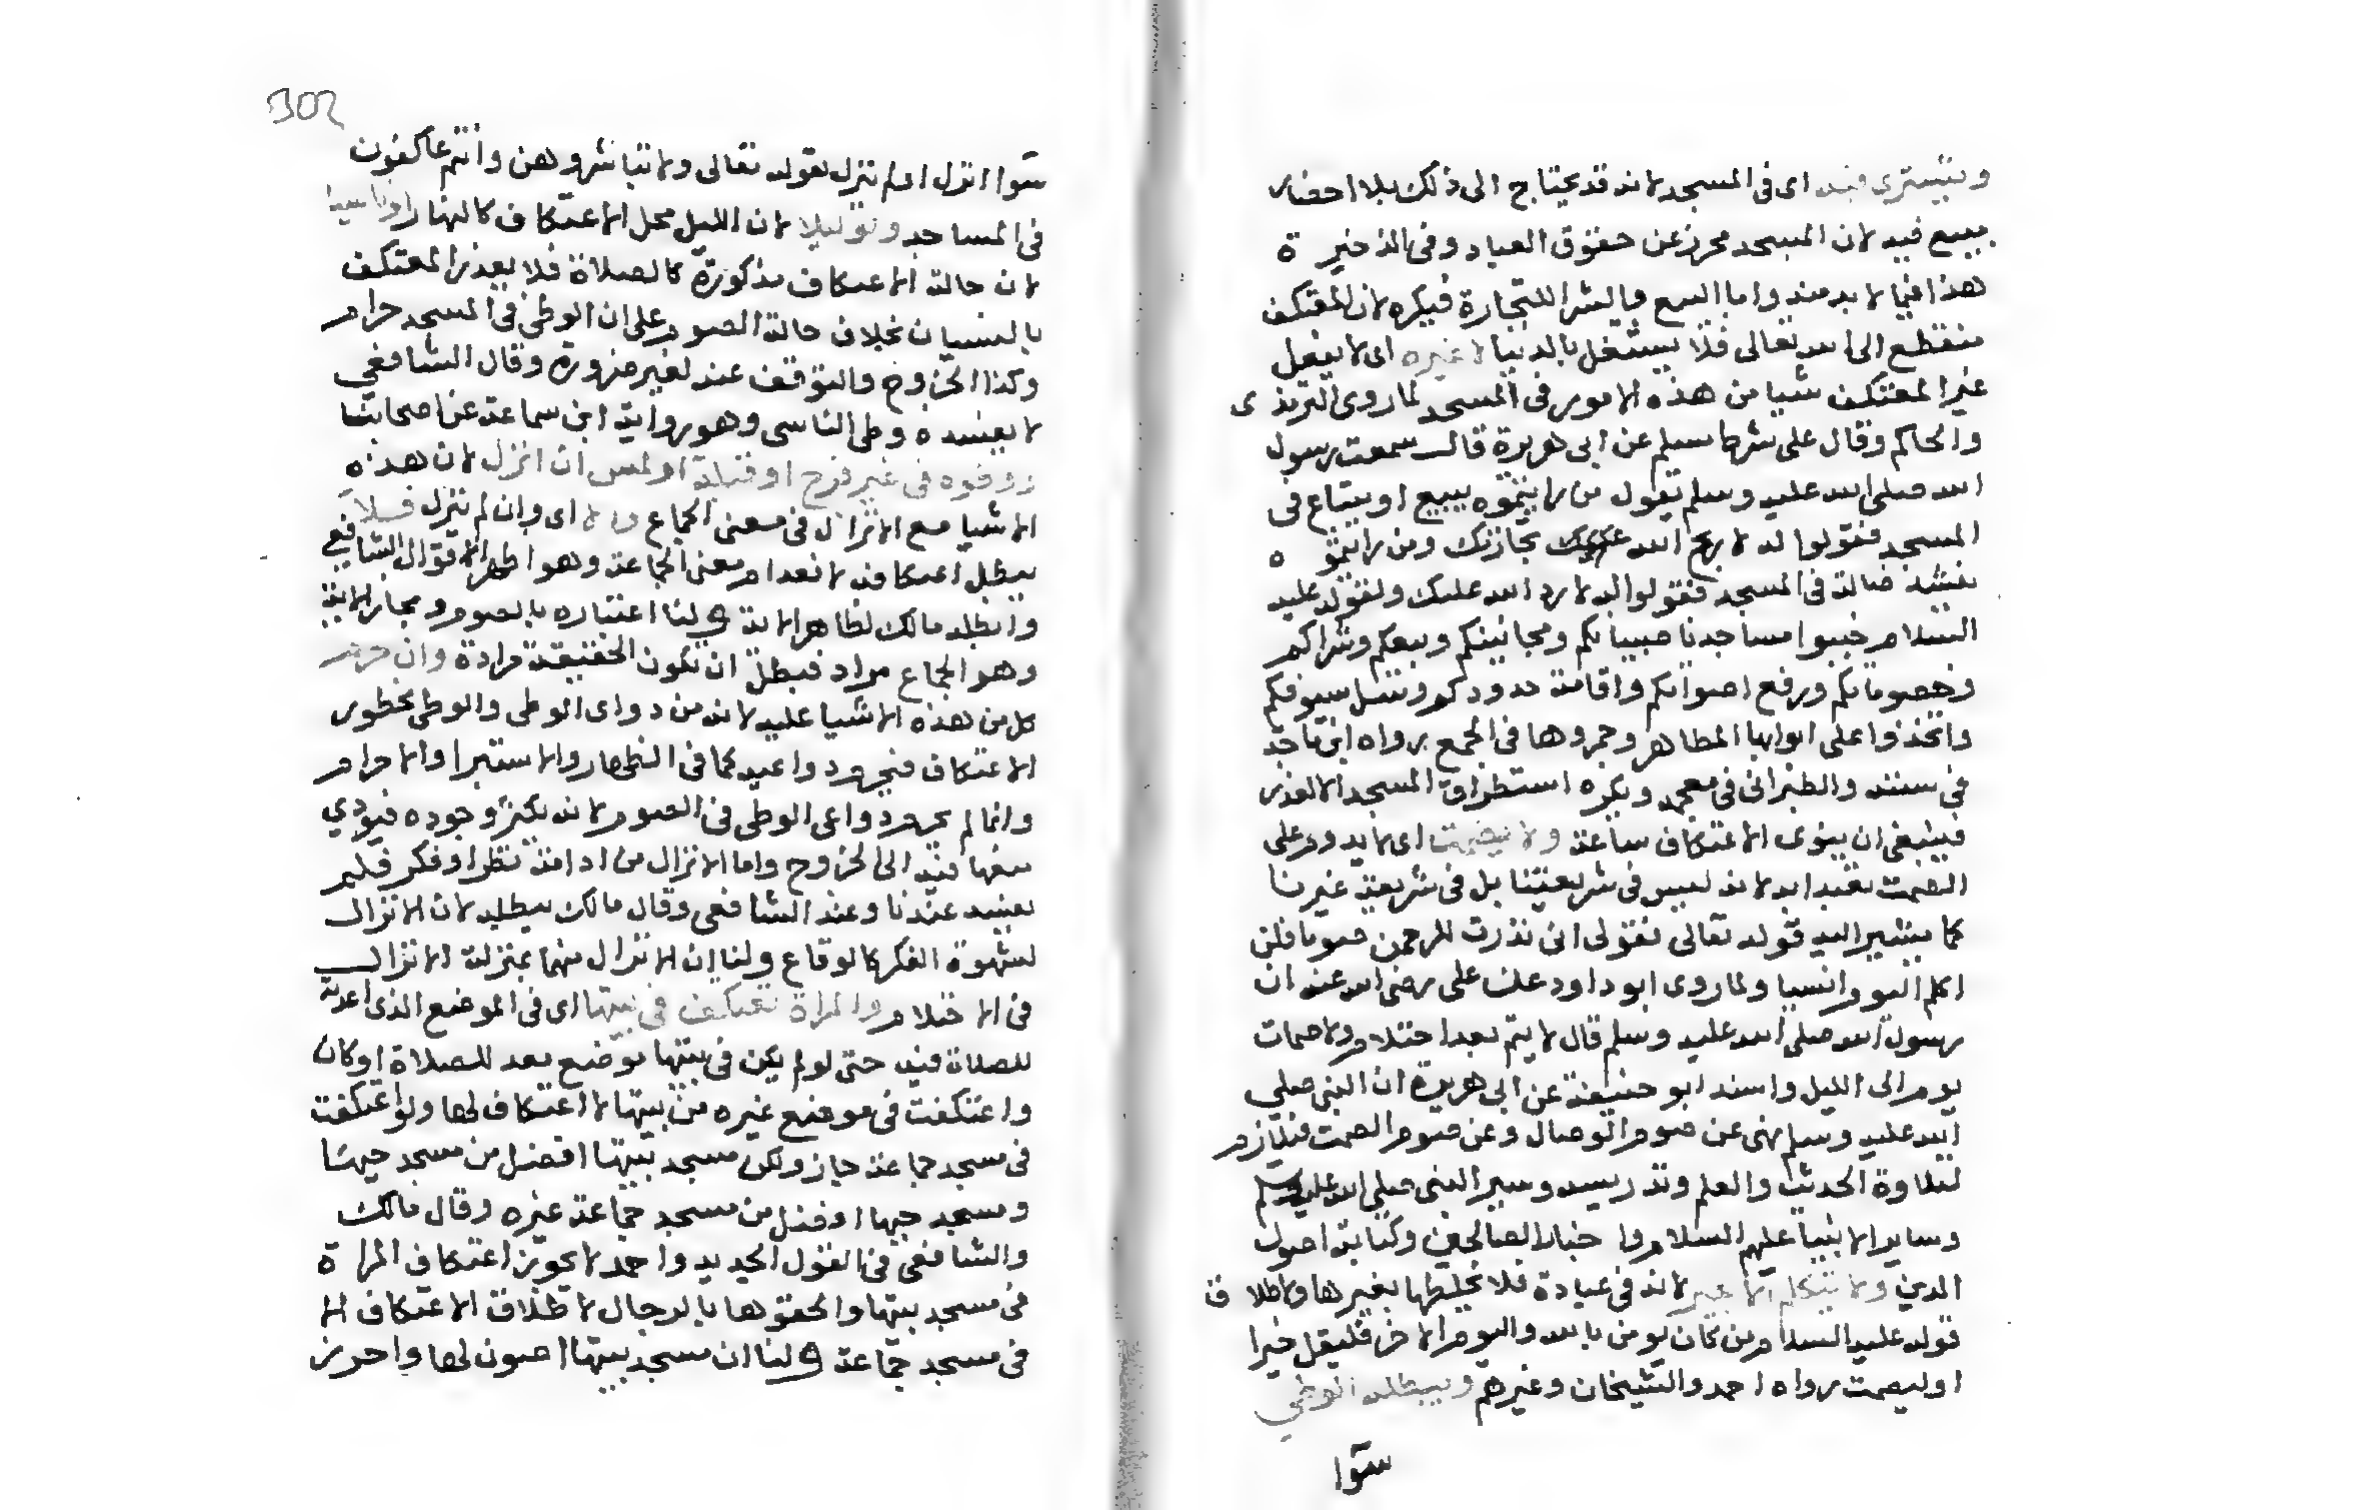 ويشتري فيه اى فى المسجد لانه قد يحتاج الى ذلك بلا احضار
مبيع فيه لان المسجد محرز عن حقوق العباد وفى الذخيرة
هذا فيما لا بد منه واما البيع والشرا للتجارة فيكره لان المعتكف
منقطع الى الله تعالى فلا يشتغل بالدنيا لا غيره اى لا يفعل
غير المعتكف شيا من هذه الامور فى المسجد لما روى الترمذى
والحاكم وقال على شرط مسلم عن ابى هريرة قال سمعت رسول
الله صلى الله عليه وسلم يقول من رايتموه يبيع او يبتاع فى
المسجد فقولوا له لا اربح الله تجارتك ومن رايتموه
ينشد ضالة فى المسجد فقولوا له لا رد الله عليك ولقوله عليه
السلام جنبوا مساجدنا صبيانكم ومجانينكم وبيعكم وشراكم
وخصوماتكم ورفع اصواتكم واقامة حدودكم وسل سيوفكم
واتخذوا على ابوابها المطاهر وجمروها فى الجمع رواه ابن ماجة
فى سننه والطبرانى فى معجمه ويكره استطراق المسجد الا لعذر
فينبغى ان ينوى الاعتكاف ساعة ولا يصمت اى لا يدوم على
الصمت تعبدا به لانه ليس فى شريعتنا بل فى شريعة غيرنا
كما يشير اليه قوله تعالى فقولى انى نذرت للرحمن صوما فلن
اكلم اليوم انسيا ولما روى ابو داود عن على رضى الله عنه ان
رسول الله صلى الله عليه وسلم قال لا يتم بعد احتلام ولا صمات
يوم الى الليل واسند ابو حنيفة عن ابى هريرة ان النبى صلى
الله عليه وسلم نهى عن صوم الوصال وعن صوم الصمت فيلازم
لتلاوة الحديث والعلم وتدريسه وسير النبى صلى الله عليه وسلم
وساير الانبيا عليهم السلام واخبار الصالحين وكتابة اصول
الدين ولا يتكلم الا بخير لانه فى عبادة فلا يخلطها بغيرها ولاطلاق
قوله عليه السلام من كان يومن بالله واليوم الاخر فليقل خيرا
او ليصمت رواه احمد والشيخان وغيرهم ويبطله الوطى
سوا
302
سوا انزل او لم ينزل لقوله تعالى ولا تباشروهن وانتم عاكفون
فى المساجد ولو ليلا لان الليل محل الاعتكاف كالنهار او ناسيا
لان حالة الاعتكاف مذكورة كالصلاة فلا يعذر المعتكف
بالنسيان بخلاف حالة الصوم على ان الوطى فى المسجد حرام
وكذا الخروج والتوقف عنه لغير ضرورة وقال الشافعي
لا يفسده وطى الناسى وهو رواية ابن سماعة عن اصحابنا
ووطوه فى غير فرج او قبلة او لمس ان انزل لان هذه
الاشيا مع الانزال فى معنى الجماع والا اى وان لم ينزل فلا
يبطل اعتكافه لانعدام معنى الجماعة وهو اظهر الاقوال الشافعى
وابطله مالك لظاهر الاية ولنا اعتباره بالصوم ومجاز الاية
وهو الجماع مراد فبطل ان تكون الحقيقة مرادة وان حرم
كل من هذه الاشيا عليه لانه من دواى الوطى والوطى محظور
الاعتكاف فيحرم دواعيه كما فى الظهار والاستبرا والاحرام
وانما لم يحرم دواعى الوطى فى الصوم لانه يكثر وجوده فيودي
منعها فيه الى الحروج واما الانزال من ادامة نظر او فكر فلم
يفسد عندنا وعند الشافعى وقال مالك يبطله لان الانزال
لشهوة الفكر كالوقاع ولنا ان الانزال منهما بمنزلة الانزال
فى الاحتلام والمراة تعتكف فى بيتها اى فى الموضع الذى اعدته
للصلاة فيه حتى لو لم يكن فى بيتها موضع معد للصلاة او كان
واعتكفت فى موضع غيره من بيتها لا اعتكاف لها ولو اعتكفت
فى مسجد جماعة جاز ولكن مسجد بيتها افضل من مسجد حيها
ومسجد حيها افضل من مسجد جماعة غيره وقال مالك
والشافعى فى القول الجديد واحمد لا يجوز اعتكاف المراة
فى مسجد بيتها والحقوها بالرجال لاطلاق الاعتكاف الا
فى مسجد جماعة ولنا ان مسجد بيتها اصون لها واحرز